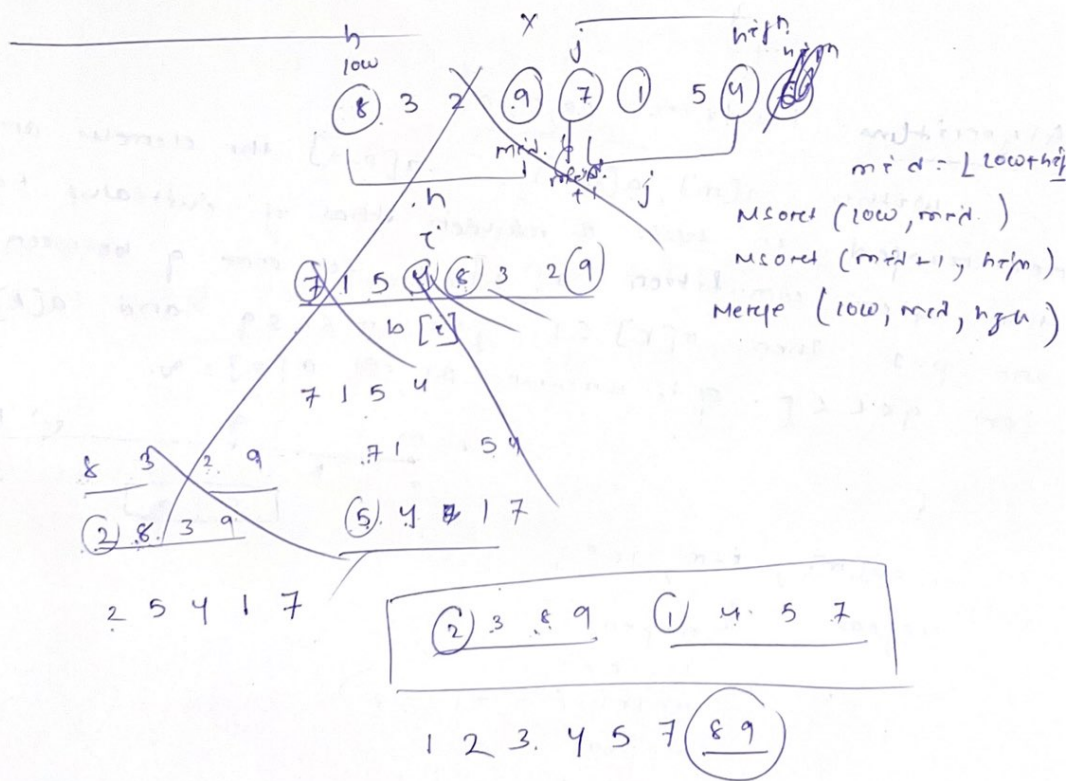 h x j high
low high
8 3 2 9 7 1 5 4
mid
+1 j
mid = ⌊low+hig
Msort (low, mid.)
Msort (mid+1, high)
Merge (low, mid, high)
h
i
7 1 5 4 8 3 2 9
b [i]
7 1 5 4
8 3 2 9 7 1 5 4
2 8 3 9 5 4 1 7
2 5 4 1 7
2 3 8 9 1 4 5 7
1 2 3. 4 5 7 8 9